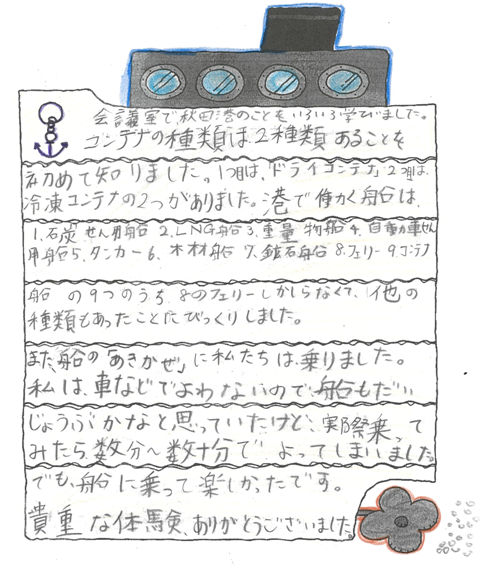 会議室で、秋田港のことをいろいろ学びました。
コンテナの種類は2種類あることを
初めて知りました。1つ目は、ドライコンテナ、2つ目は、
冷凍コンテナの2つがありました。港で働く船は、
1.石炭せん用船 2.LNG船 3.重量物船 4.自動車せん
用船 5.タンカー 6.木材船 7.鉱石船 8.フェリー 9.コンテナ
船の9つのうち、8のフェリーしかしらなくて、他の
種類もあったことにびっくりしました。
また、船の「あきかぜ」に私たちは、乗りました。
私は、車などでよわないので、船もだい
じょうぶかなと思っていたけど、実際乗って
みたら、数分〜数十分で、よってしまいました。
でも、船に乗って楽しかったです。
貴重な体験、ありがとうございました。